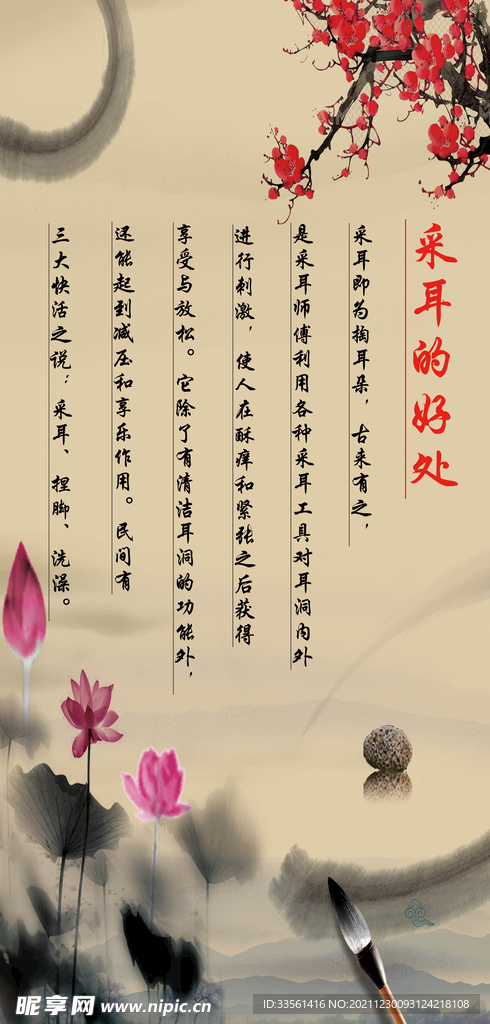 采耳的好处
采耳即为掏耳朵，古来有之，
是采耳师傅利用各种采耳工具对耳洞内外
进行刺激，使人在酥痒和紧张之后获得
享受与放松。它除了有清洁耳洞的功能外，
还能起到减压和享乐作用。民间有
三大快活之说：采耳、捏脚、洗澡。
昵享网 www.nipic.cn
ID:33561416 NO:20211230093124218108